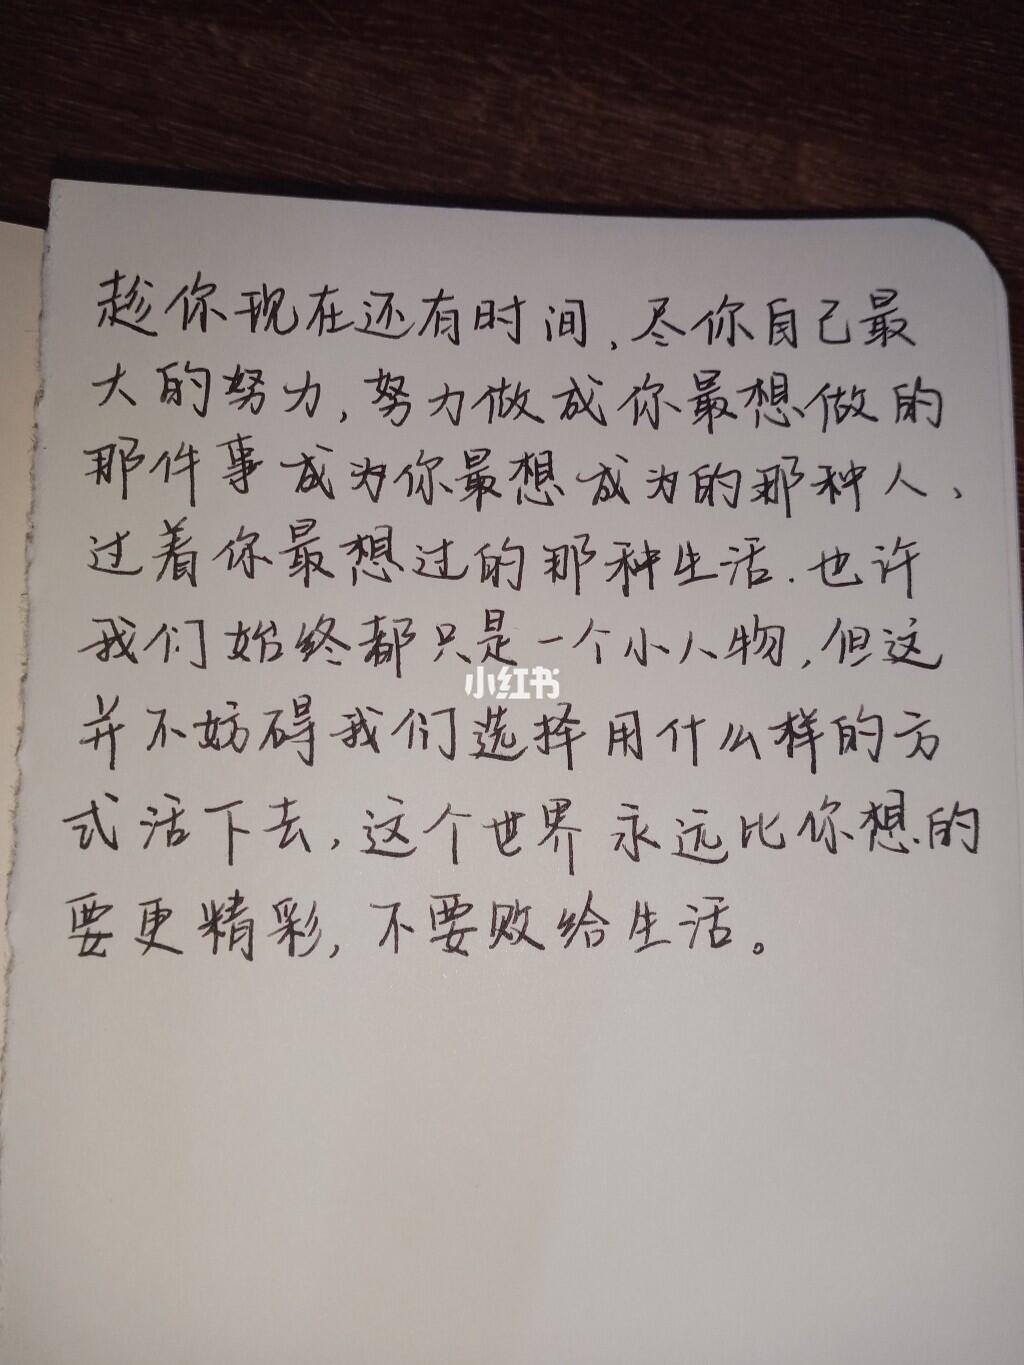 趁你现在还有时间,尽你自己最
大的努力,努力做成你最想做的
那件事成为你最想成为的那种人、
过着你最想过的那种生活.也许
我们始终都只是一个小人物,但这
小红书
并不妨碍我们选择用什么样的方
式活下去,这个世界永远比你想的
要更精彩,不要败给生活。